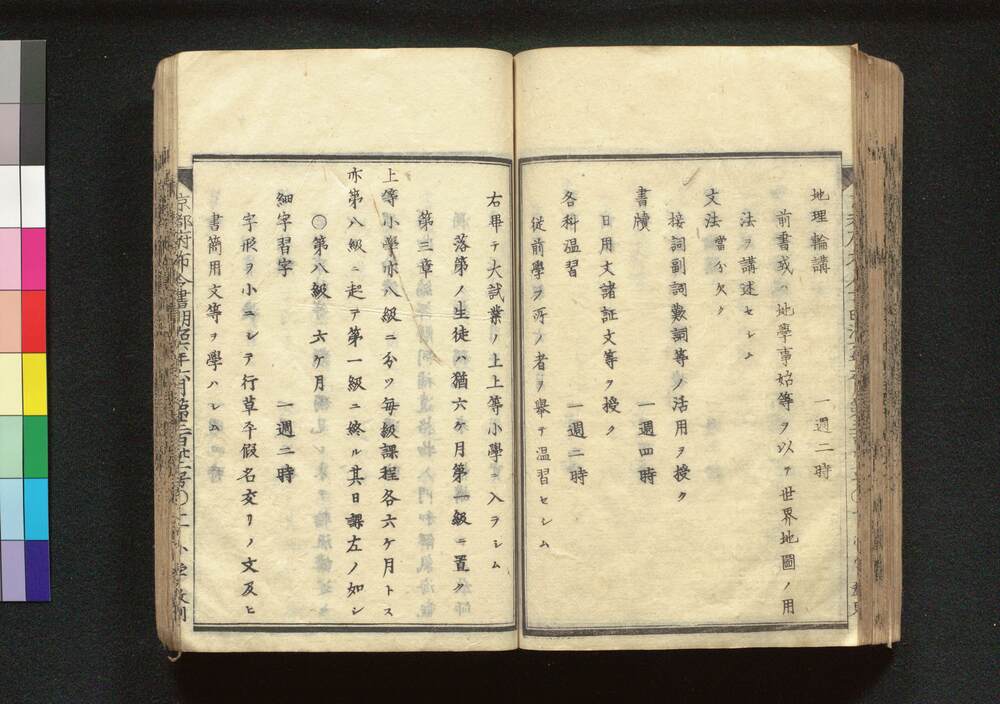 地理輪講　一週二時
前書或ハ地學事始等ヲ以テ世界地圖ノ用
法ヲ講述セシム
文法當分欠ク
接詞副詞歎詞等ノ活用ヲ授ク
書牘　一週四時
日用文諸証文等ヲ授ク
各科温習　一週二時
従前學フ所ノ者ヲ舉テ温習セシム
右畢テ大試業ノ上上等小學ニ入ラシム
落第ノ生徒ハ猶六ケ月第一級ニ置ク
第三章
上等小學亦八級ニ分ツ毎級課程各六ケ月トス
亦第八級ニ起テ第一級ニ終ル其日課左ノ如シ
〇第八級　六ケ月
細字習字　一週二時
字形ヲ小ニシテ行草平假名交リノ文及ヒ
書簡用文等ヲ學ハシム
京都府布令書明治六年六月第二百廿二号〇十一小學教則